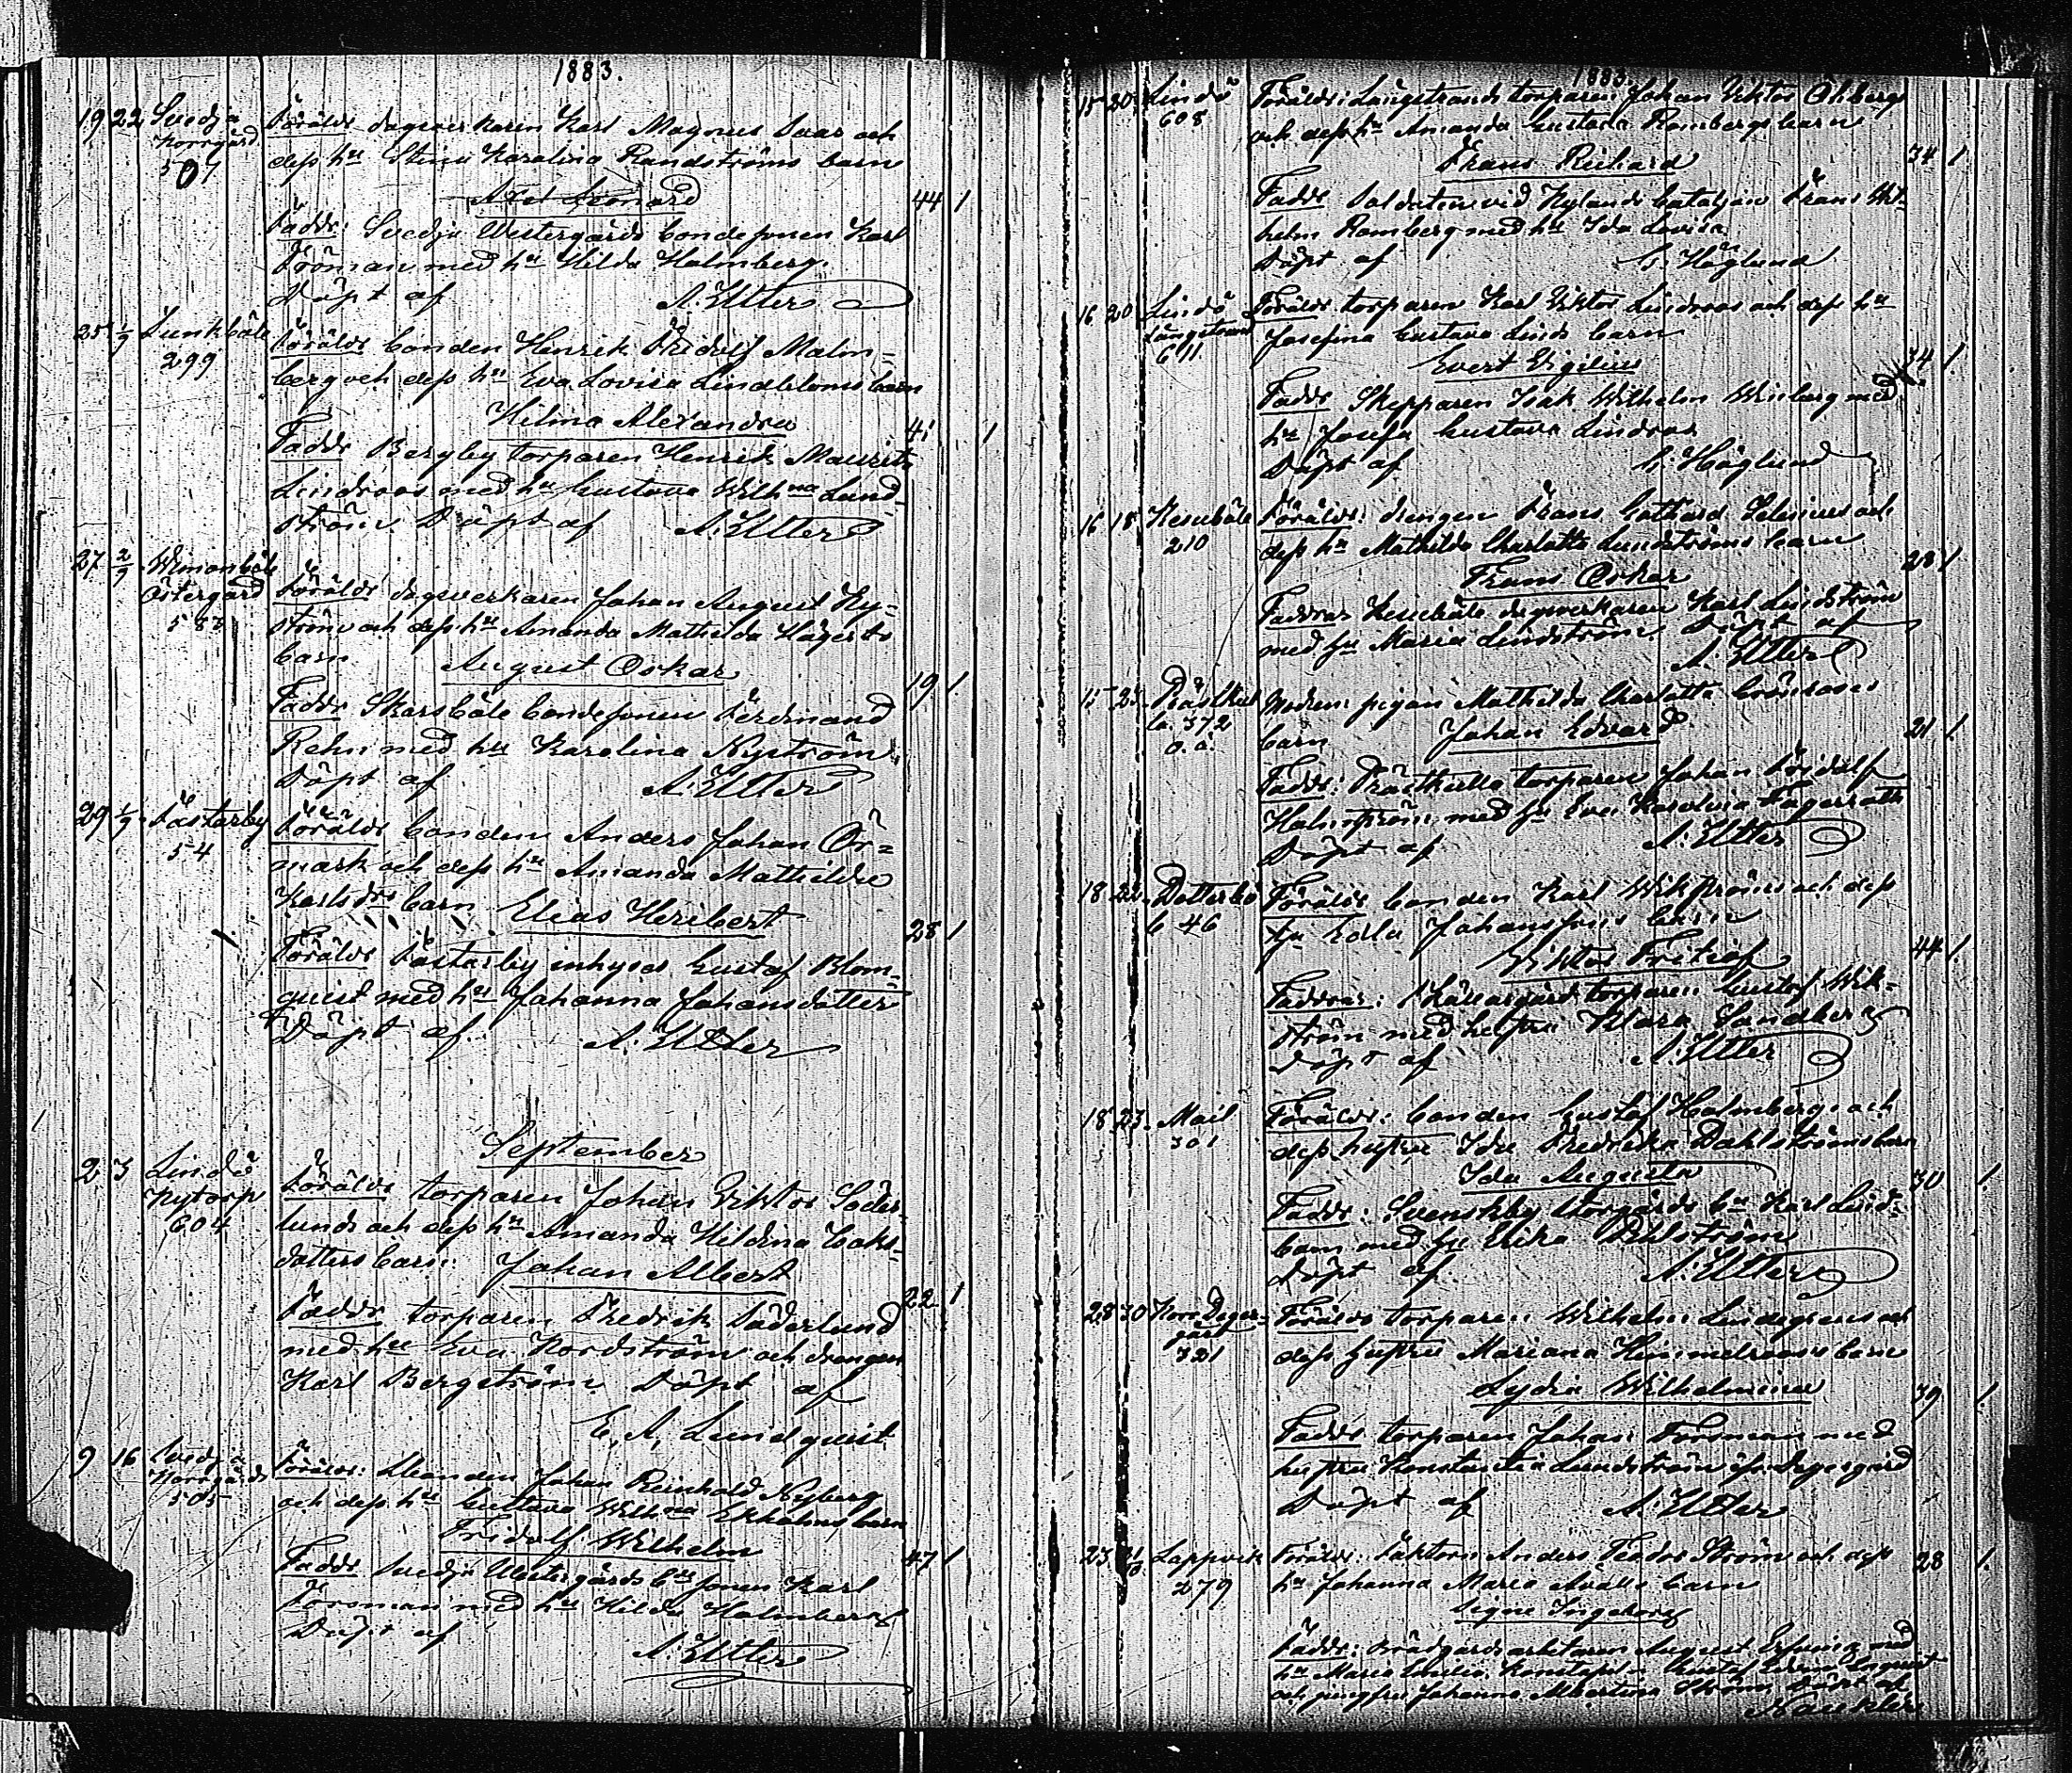 1883.
19 22 Svedja Föräldr dagsverkaren Karl Magnus Saar och
Norrgård dess hu Stina Karolina Randströms barn
507
Axel Leonard 44 1
Faddr: Svedja Westergårds bondesonen Karl
Fröman med hu Hilda Holmberg.
Döpt af A. Utter
25 1/9 Sunkböle Föräldr bonden Henrik Fridolf Malm-
299 berg och dess hu Eva Lovisa Lindbloms barn
Hilma Alexandra 41 1
Faddr Bergby torparen Henrik Maurits
Lindroos med hu Gustava Wilhna Lund-
ström Döpt af A. Utter
27 2/9 Östergård Föräldr dagsverkaren Johan August Ny-
ström och dess hu Amanda Mathilda Hägerts
barn August Oskar 19 1
Faddr Skarsböle bondesonen Ferdinand
Rehn med hu Karolina Nyström.
Döpt af A. Utter
29 1/9 Fästarby Föräldr bonden Anders Johan Ör-
54 mark och dess hu Amanda Mathilda
Karlsdrs barn Elias Heribert 28 1
Föräldr Fästarby inhyses Gustaf Blom-
quist med hu Johanna Johansdotter
Döpt af. A. Utter
September
2 3 Lindö Föräldr torparen Johan Viktor Söder-
Nytorp lunds och dess hu Amanda Hildina
604 dotters barn: Johan Albert 22 1
Faddr torparen Fredrik Söderlund
med hu Eva Nordström och drengen
Karl Bergström Döpt af
E. A. Lundquist
9 16 Svedja Föräldr: Johan Reinhold Nyberg
Norrgårds och dess hu Gustava Wilhna Ekholms barn
505 Fridolf Wilhelm 47 1
Faddr Svedja Westergårds sonen Karl
Forsman med hu Hilda Holmberg
Döpt af A. Utter
1883.
15 20 Lindö Föräldr: Långstrands torparen Johan Viktor Öhberg
608 och dess hu Amanda Gustava Rombergs barn
Frans Richard 34 1
Faddr Soldaten vid Nylands bataljon Frans Wil-
helm Romberg med hu Ida Lovisa
Döpt af G. Höglund
16 20 Lindö Föräldr torparen Karl Viktor Lindroos och dess hu
Långstrand Josefina Gustava Linds barn
611 Evert Vigilius 34 1
Faddr Skepparen Isak Wilhelm Winberg med
hu Josefa Gustava Lindroos
Döpt af G. Höglund
16 18 Föräldr: drengen Frans Gotthard och
210 dess hu Mathilda Charlotta Lundströms barn
Frans Oskar 28 1
Faddrar dagsverkaren Karl Lindström
med hu Maria Lindström Döpt af
A. Utter
15 23 Prästkul Modren: pigan Mathilda Charlotta Grönroos
la. 372 barn Johan Edvard 21 1
o. ä.
Faddr: Prästkulla torparen Johan Fridolf
Holmström med hu Eva Karolina Fagerroth
Döpt af A. Utter
18 22 Dotterbö Föräldr bonden Karl Wikströms och dess
b 46 hu Edla Johanssons barn
Viktor Fritiof 44 1
Faddrar: Källargård torparen Gustaf Wik-
ström med hustru Klara Sandberg
Döpt af A. Utter
18 23 Mail Föräldr: bonden Gustaf Holmbergs och
301 dess hustru Ida Fredrika Dahlströms barn
Ida Augusta 30 1.
Faddr: Svenskby Storgårds Karl Lind-
bom med hu Erika Dahlström
Döpt af A. Utter
28 30 Föräldr torparen Wilhelm Lindgrens och
321 dess hustru Mariana Himmelroos's barn
Lydia Wilhelmina 39 1.
Faddr torparen Johan Forsman med
hustru Konstantia Lundström Degergård
Döpt af A. Utter
23 Lappvik Föräldr: Faktorn Anders Teodor Ström och dess
279 hu Johanna Maria barn 28 1.
Signe Ingeborg
Faddr: trädgårdsarbetaren August med
hu Maria
och jungfru Johanna Albertina Ström Döpt af